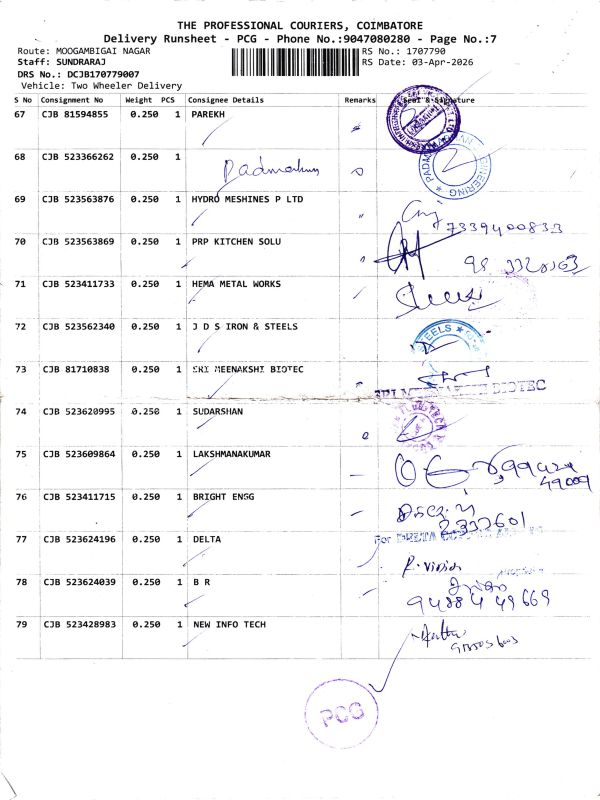 THE PROFESSIONAL COURIERS, COIMBATORE
Delivery Runsheet - PCG - Phone No.:9047080280 - Page No.:7
Route: MOOGAMBIGAI NAGAR RS No.: 1707790
Staff: SUNDRARAJ RS Date: 03-Apr-2026
DRS No.: DCJB170779007
Vehicle: Two Wheeler Delivery
S No Consignment No Weight PCS Consignee Details Remarks Seal & Signature
67 CJB 81594855 0.250 1 PAREKH
68 CJB 523366262 0.250 1 Padmakum
69 CJB 523563876 0.250 1 HYDRO MESHINES P LTD
7339400833
70 CJB 523563869 0.250 1 PRP KITCHEN SOLU
71 CJB 523411733 0.250 1 HEMA METAL WORKS
72 CJB 523562340 0.250 1 J D S IRON & STEELS
73 CJB 81710838 0.250 1 SRI MEENAKSHI BIOTEC
SRI MEENAKSHI BIOTEC
74 CJB 523620995 0.250 1 SUDARSHAN
75 CJB 523609864 0.250 1 LAKSHMANAKUMAR
49009
76 CJB 523411715 0.250 1 BRIGHT ENGG
2332601
77 CJB 523624196 0.250 1 DELTA
For DELTA
78 CJB 523624039 0.250 1 B R
9488449669
79 CJB 523428983 0.250 1 NEW INFO TECH
PCG